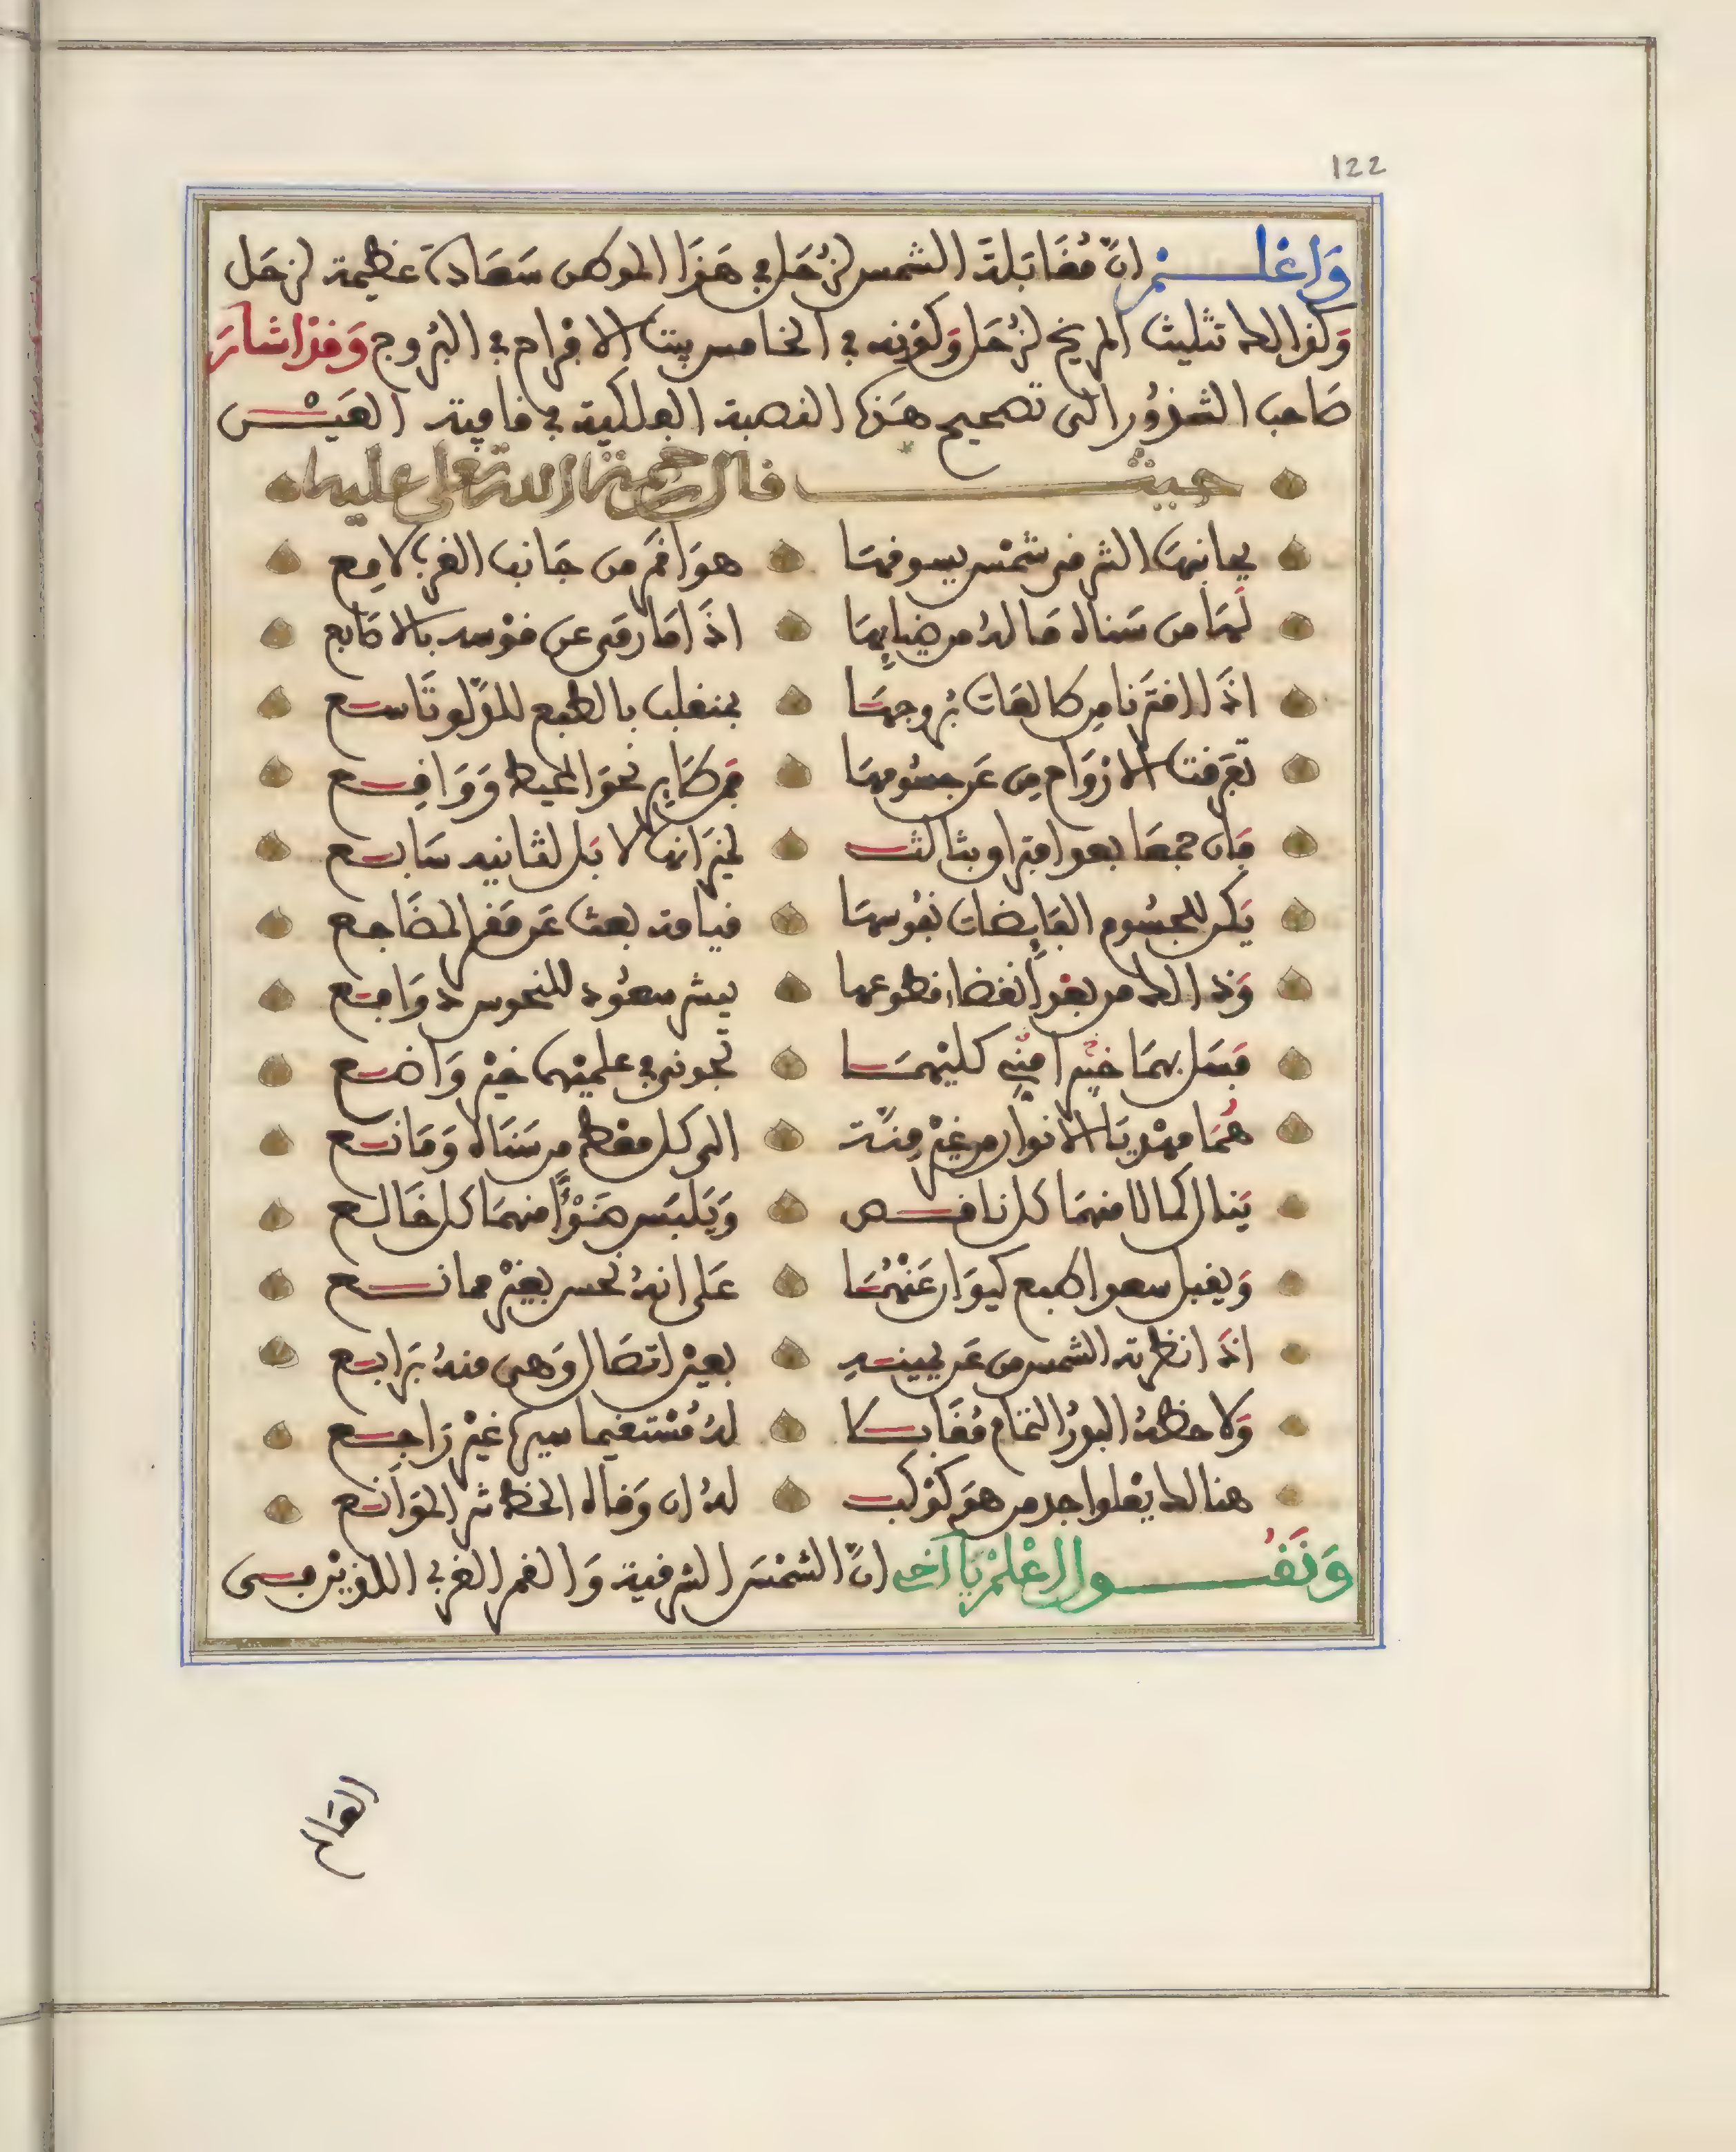 122
وَاعْلَمْ اَنَّ مُقَابَلَةَ الشمس لِزُحَل في هَذَا الموطن سَعَادَة عَظيمة لزحَل
وَكذَالك تثليث المريخ لزُحَل وَكَوْنه في الخامس بيت الافراح في البُرُوج وَقَدْ اشارَ
صَاحب الشذُور الى تصحيح هَذه النصبة الفلكية في قافية العَيْن
حيث قال رحمة الله تعلى عليه
بجانبهَا الشرقي شمْس يسوقهَا هوَا قمَر من جَانب الغرب لامِع
لَهَا من سَناه مَا لهُ من ضيايِهَا اذَا مَا رمَى عن قوْسه بالاصَابع
اذَا اقتَرنا من طالعَات بُرُوجهَا بمنقلب بالطبع للدَّلو تَاسع
تفَرقت الارْوَاح من عَن جسُومهَا فمن طَاير نحوَ المحيط وَوَاقِع
فان جمعَا بعد افتراق بثالث لميزانها لا بَل لثانيه سَابع
يَكن للجسُوم القابضات نفُوسهَا قيامة بعث عَن مَقر المضَاجع
وَذالك من بعْد انقضاء قطوعها بيشر سعُود للنحوس دوَافع
فسَل بهمَا خبيرا كليهمَا تجدني في علميْهما خيْر وَاضع
هُمَا مهْديَا الانوار من غيْر مِنَّة الى كل معْط من سَنَاه وَمَانع
يَنال كمالا منهمَا كل ناقص وَيَلبَس ضَوْءًا منهمَا كل خَالع
وَيقبل سعدا طبع كيوَان عَنْهُمَا عَلى انهُ نحس بغيْر ممانع
اذَا نظرته الشمس من عَن يمينه بعيْن اتصَال وَهي منهُ برَابع
وَلاحظهُ البدْر التمَام مُقَابلا لهُ مُسْتقيما سيرها غيْر رَاجع
هنالك يعْلو جد من هوَ كوْكب لهُ ان وَقاه الحظ شر الموَانع
وَنَقُول اعْلمْ يَا اَخي اَنَّ الشمْسَ الشرقية وَالقمر الغربي اللذيْن مسى
القمَران